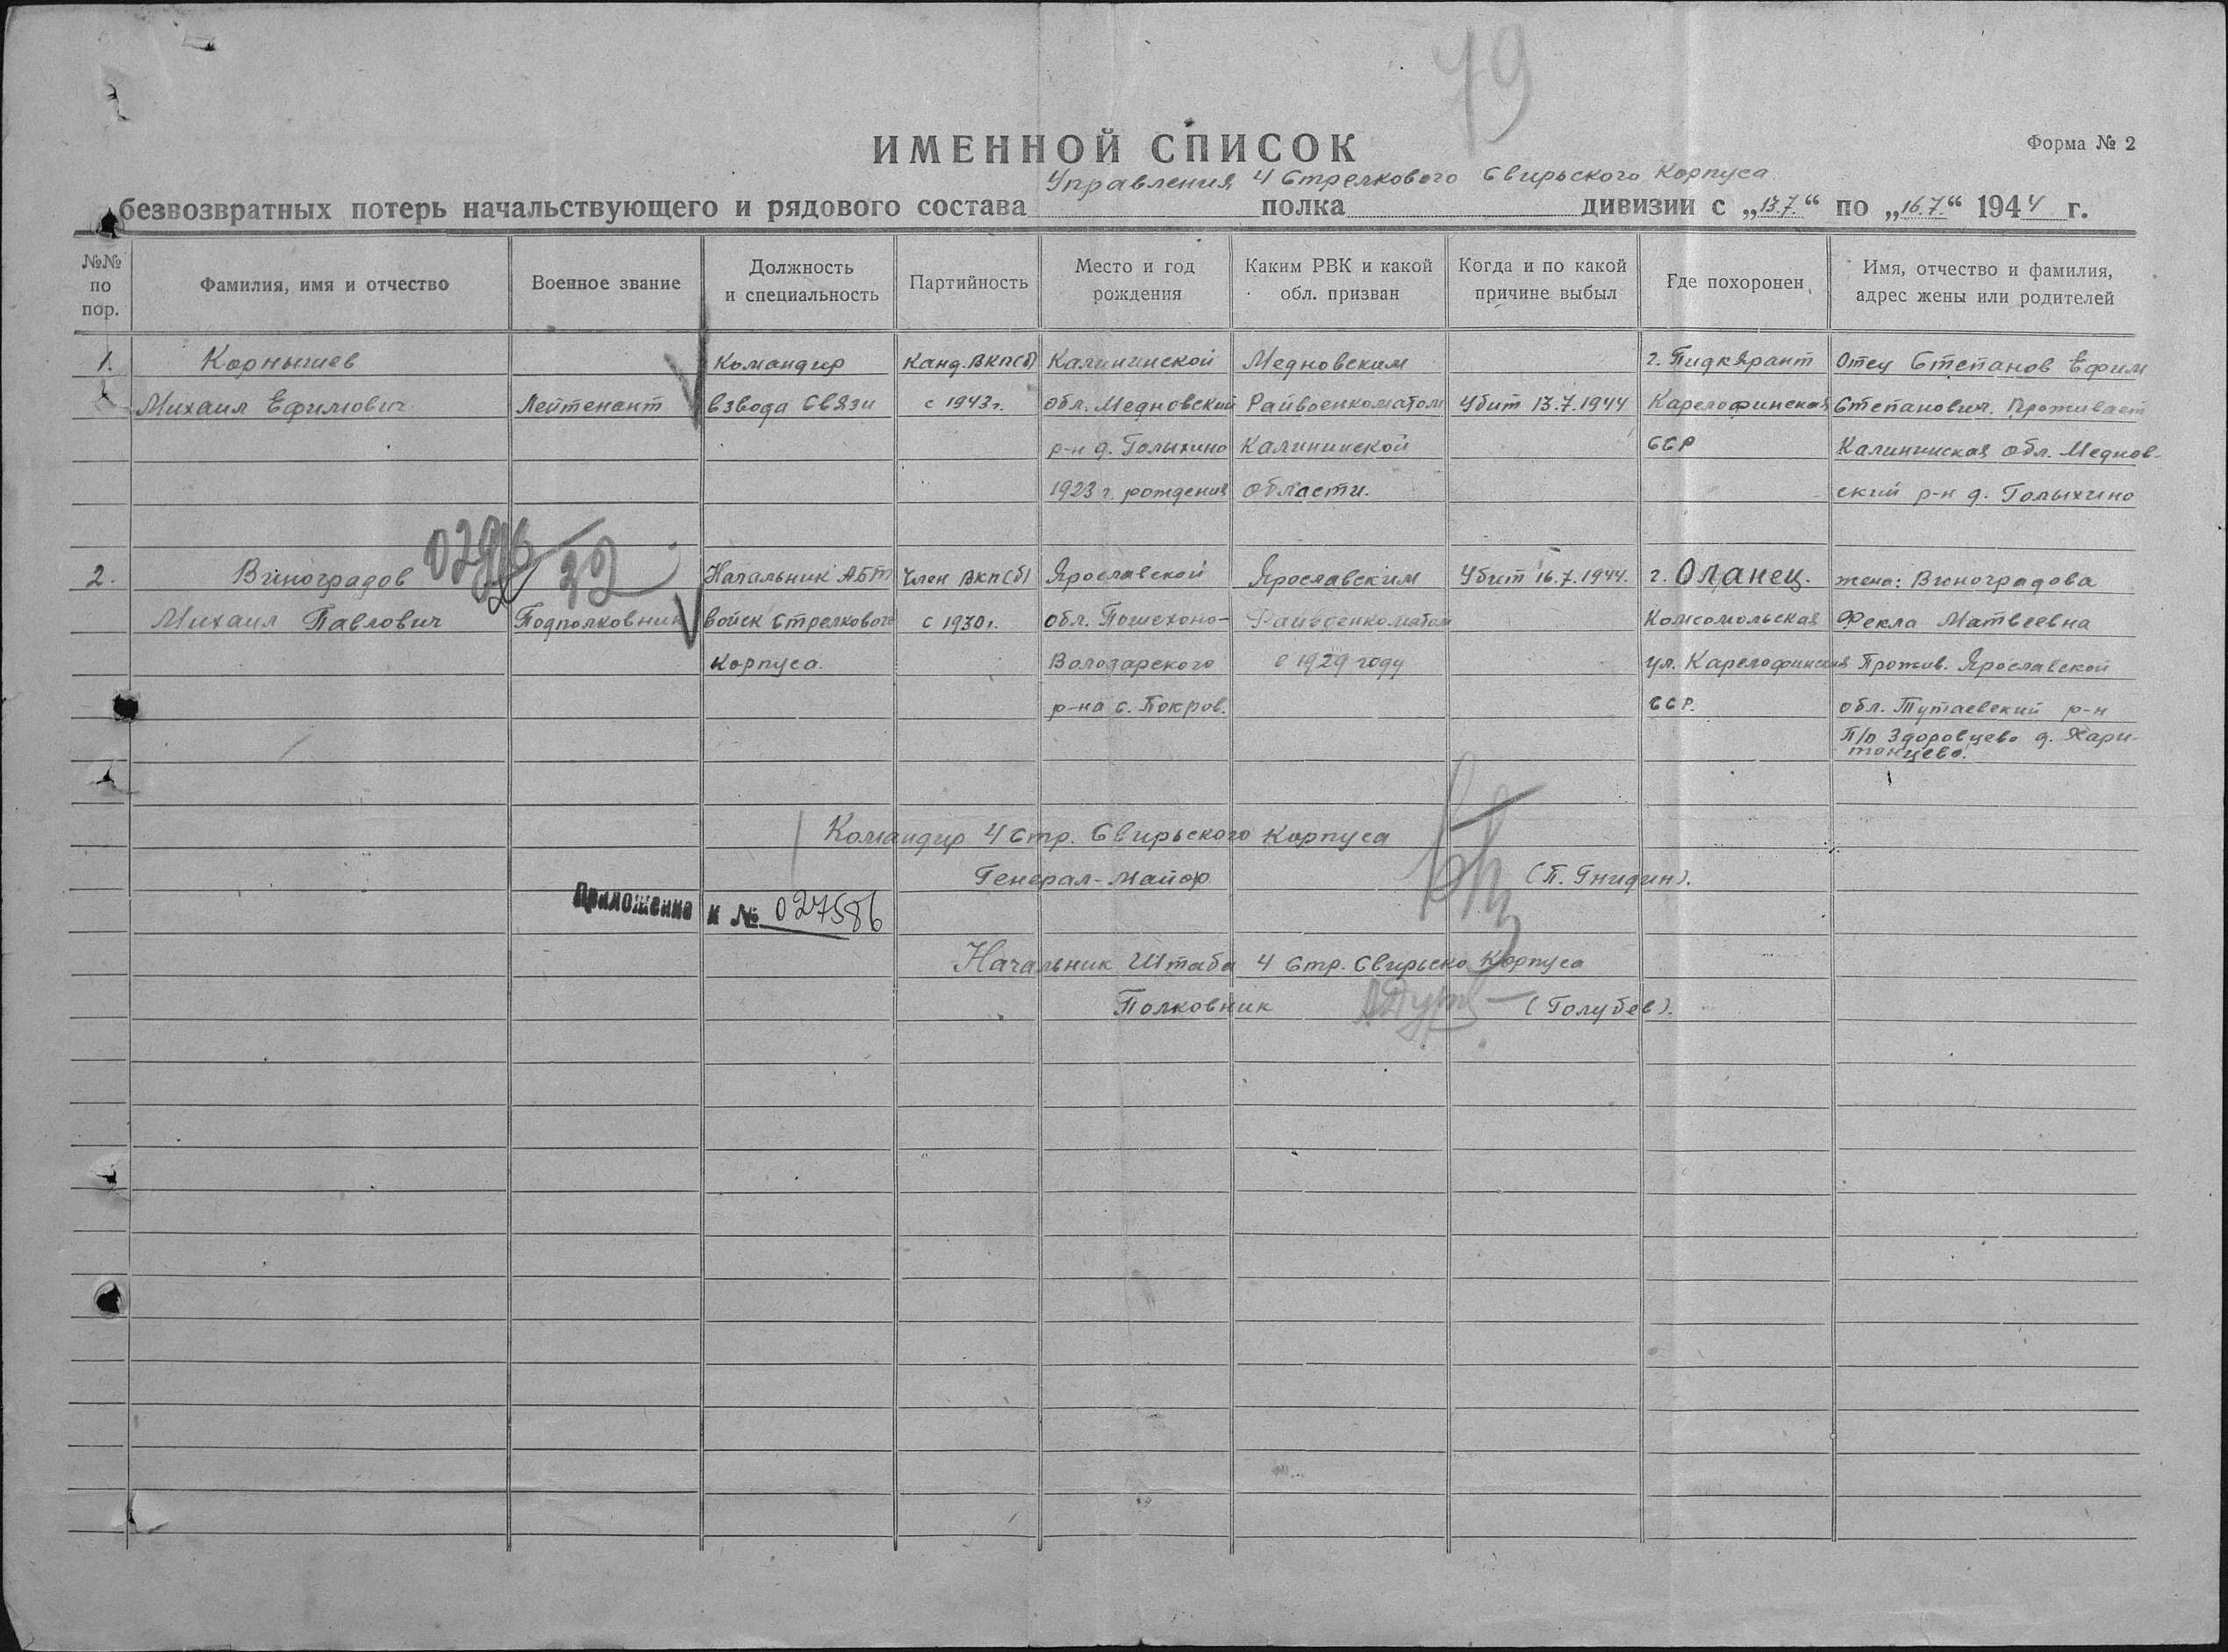 19
ИМЕННОЙ СПИСОК
Форма № 2
Управления 4 Стрелкового Свирьского Корпуса
безвозвратных потерь начальствующего и рядового состава полка дивизии с „13.7.“ по „16.7.“ 1944 г.
№№ по пор.
Фамилия, имя и отчество
Военное звание
Должность и специальность
Партийность
Место и год рождения
Каким РВК и какой обл. призван
Когда и по какой причине выбыл
Где похоронен
Имя, отчество и фамилия, адрес жены или родителей
1. Корнышев Командир Канд. ВКП(б) Калининской Медновским г. Пидкярант Отец Степанов Ефим
Михаил Ефимович Лейтенант взвода связи с 1943 г. обл. Медновский Райвоенкоматом Убит 13.7.1944 Карелофинская Степанович. Проживает
р-н д. Голыхино Калининской ССР Калининская обл. Меднов-
1923 г. рождения области. ский р-н д. Голыхино
2. Виноградов Начальник АБТ Член ВКП(б) Ярославской Ярославским Убит 16.7.1944. г. Олонец. жена: Виноградова
Михаил Павлович Подполковник войск Стрелкового с 1930 г. обл. Пошехоно- Райвоенкоматом Комсомольская Фекла Матвеевна
Корпуса. Володарского в 1929 году ул. Карелофинская Прожив. Ярославской
р-на с. Покров. ССР. обл. Тутаевский р-н
П/о Здоровцево д. Хари-
тонцево.
Командир 4 Стр. Свирьского Корпуса
Генерал-Майор (П. Гнидин).
Приложение к № 027586
Начальник Штаба 4 Стр. Свирьско Корпуса
Полковник (Голубев).